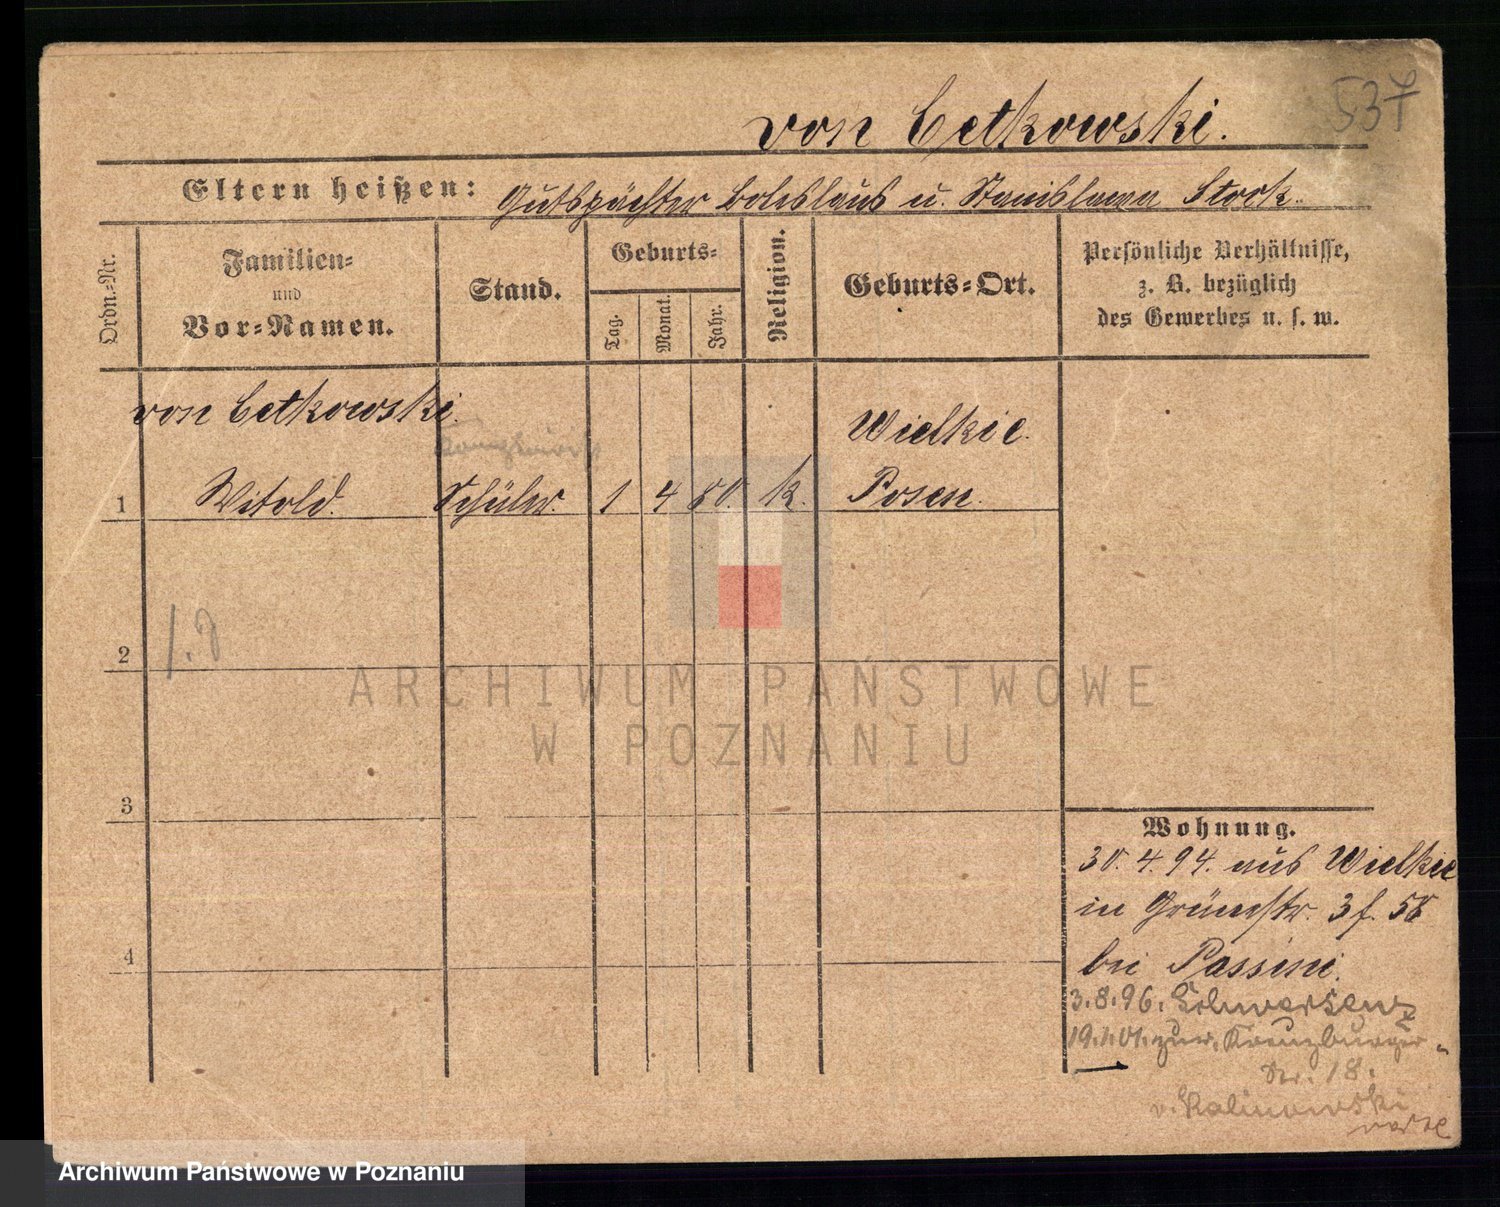 537
von Cetkowski.
Eltern heißen: Gutspächter Boleslaus u. Stanislawa Stock.
Ordn.-Nr.
Familien-
und
Vor-Namen.
Stand.
Geburts-
Tag.
Monat.
Jahr.
Religion.
Geburts-Ort.
Persönliche Verhältnisse,
z. B. bezüglich
des Gewerbes u. s. w.
von Cetkowski.
Wielkie.
1 Witold. Schüler. 1 4 80. k. Posen.
2
3
4
Wohnung.
30. 4. 94. aus Wielkie
in Grünstr. 3 f. 58
bei Passini.
3.8.96. Schwersenz
19.1.01. zur. Kreuzburger-
Str. 18.
v. Kalinowski
ARCHIWUM PAŃSTWOWE
W POZNANIU
Archiwum Państwowe w Poznaniu